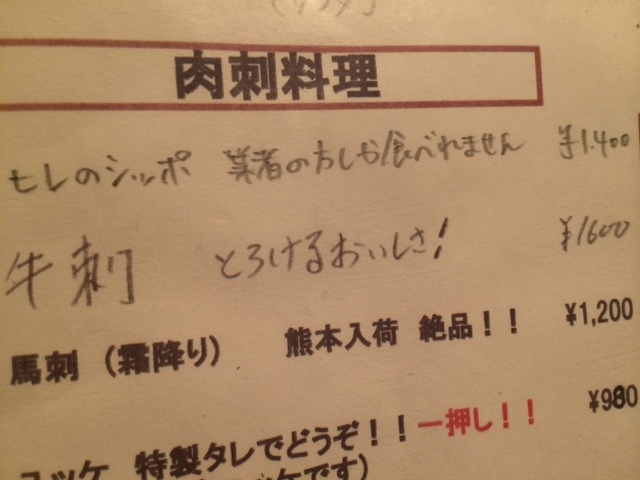 肉刺料理
ヒレのシッポ 業者の方しか食べれません ¥1.400
牛刺 とろけるおいしさ! ¥1600
馬刺（霜降り） 熊本入荷 絶品！！ ¥1,200
ユッケ 特製タレでどうぞ！！一押し！！ ¥980
ッケです）